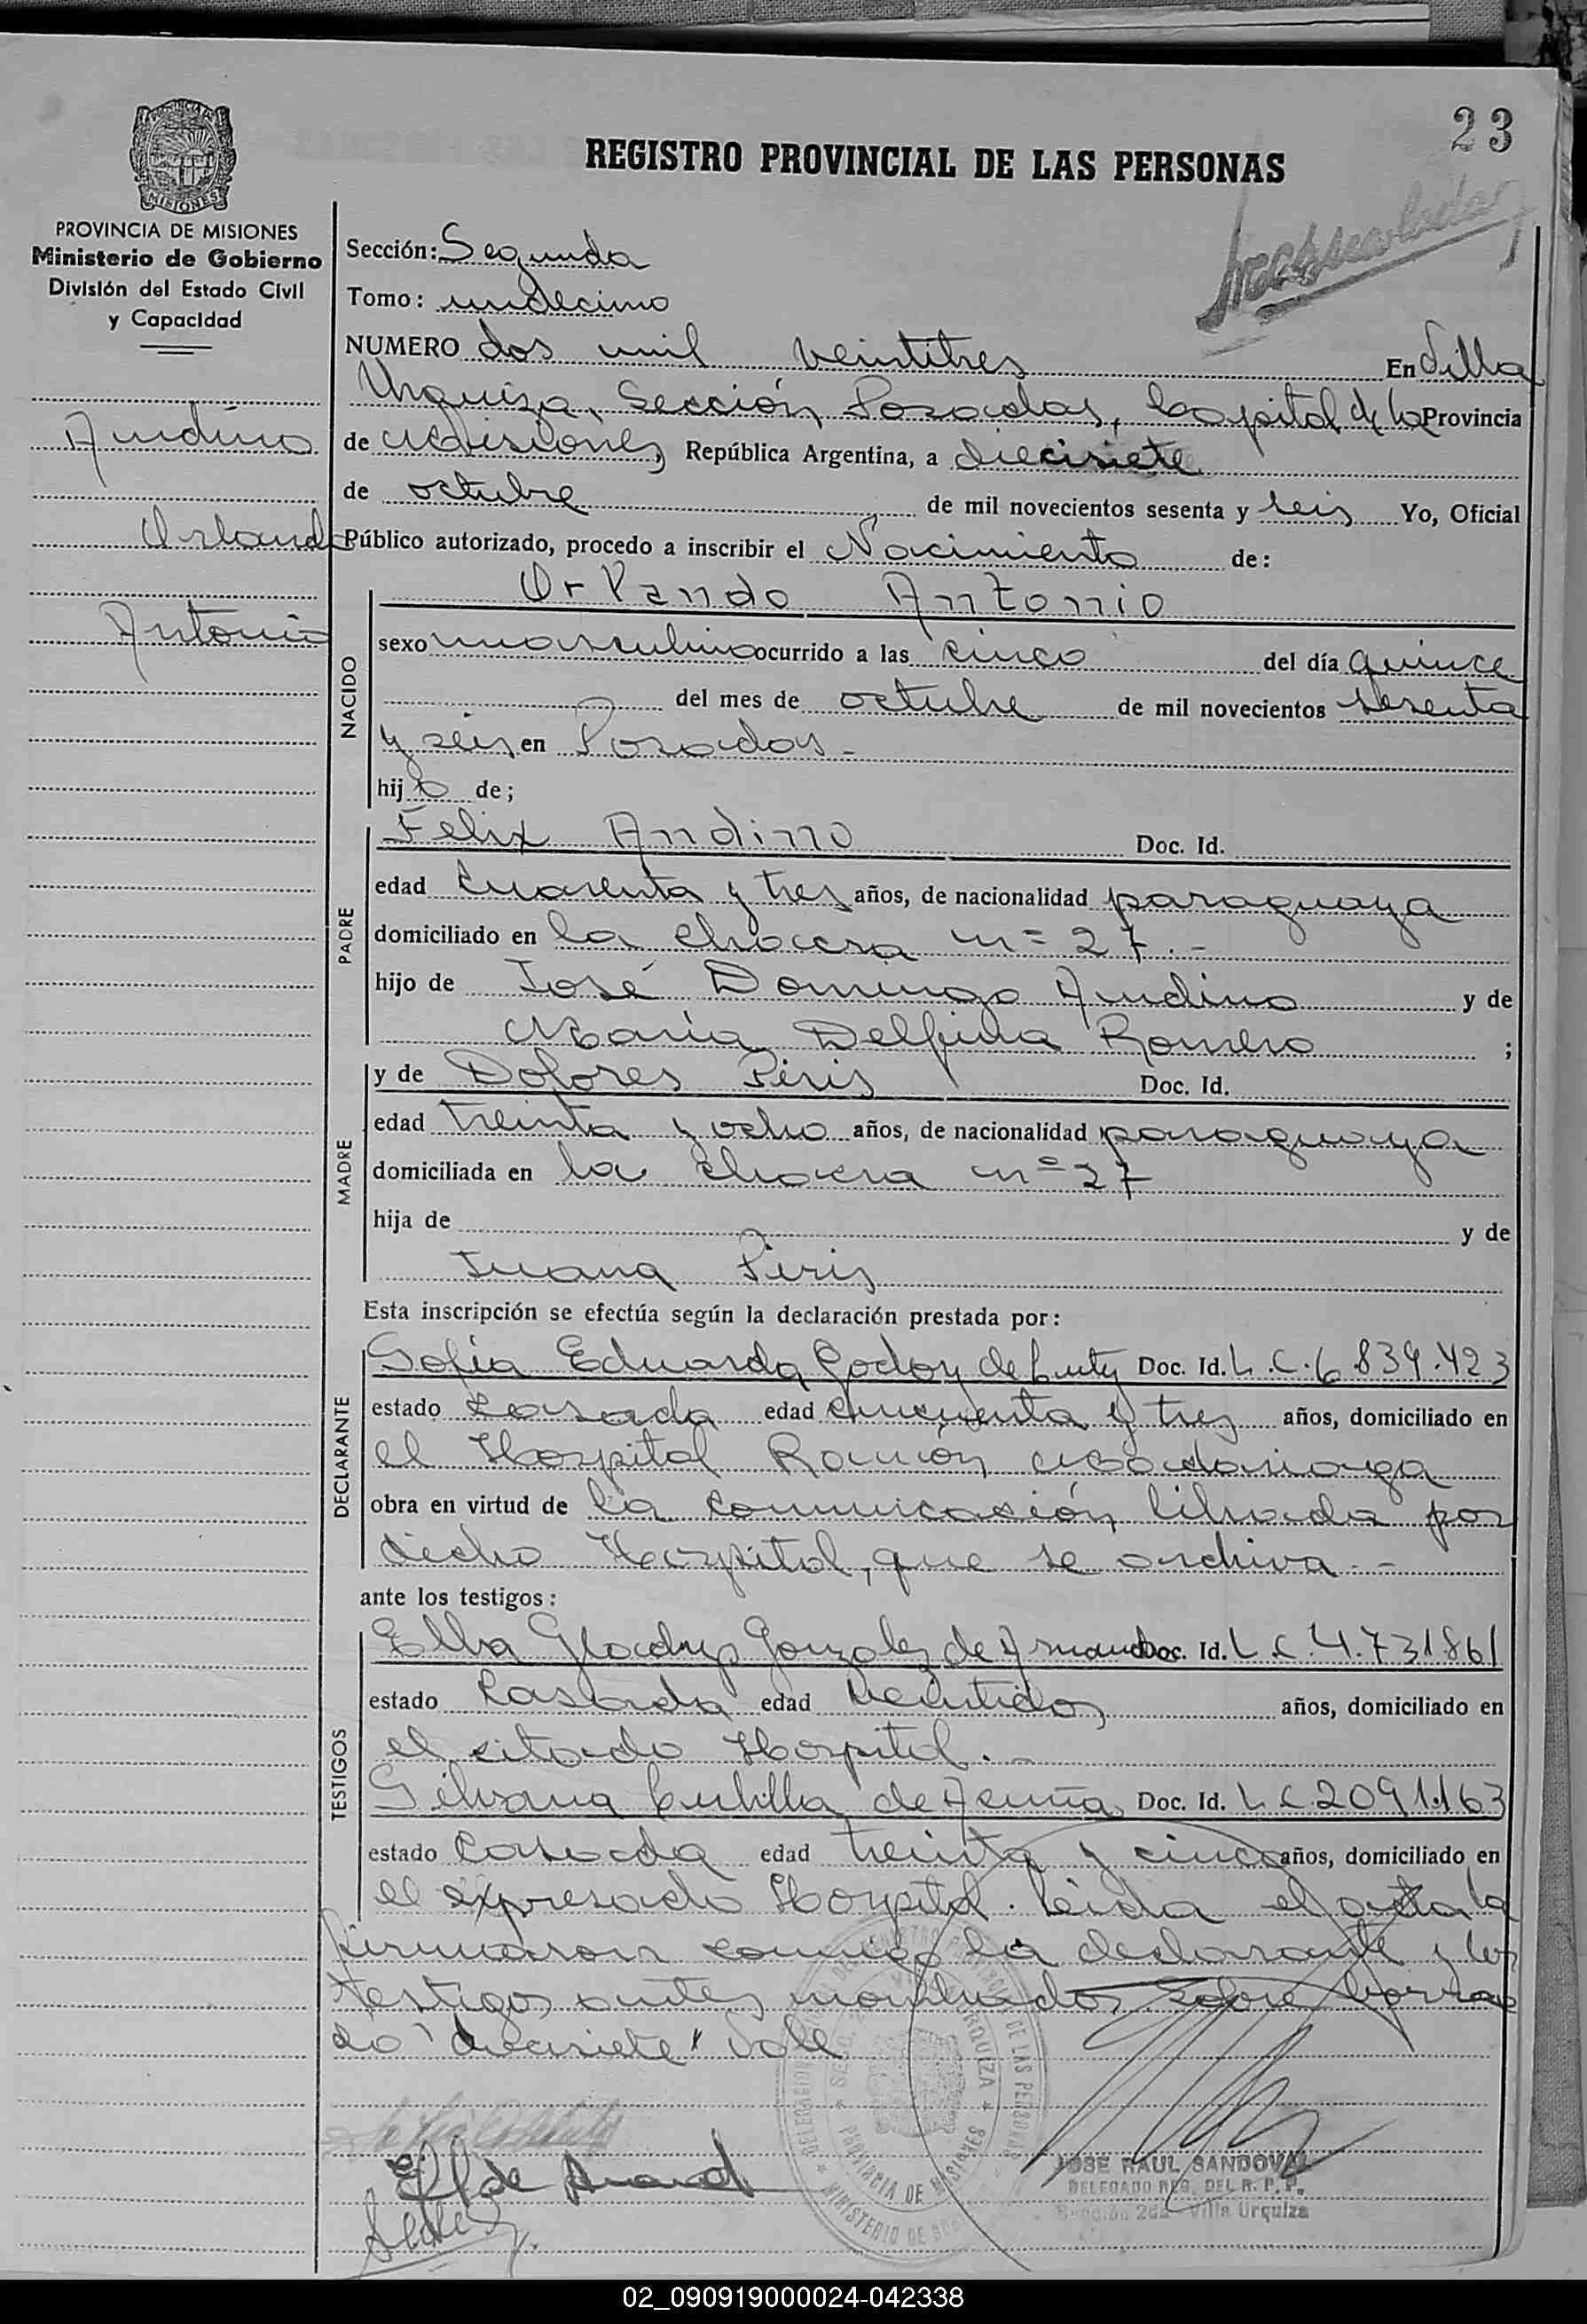 23
REGISTRO PROVINCIAL DE LAS PERSONAS
PROVINCIA DE MISIONES
Ministerio de Gobierno
División del Estado Civil
y Capacidad
Andino
Orlando
Antonio
Sección: Segunda
Tomo: undecimo
NUMERO dos mil veintitres En Villa
Urquiza, Sección Posadas, Capital de la Provincia
de Misiones, República Argentina, a diecisiete
de octubre de mil novecientos sesenta y seis Yo, Oficial
Público autorizado, procedo a inscribir el Nacimiento de:
Orlando Antonio
NACIDO
sexo masculino ocurrido a las cinco del día quince
del mes de octubre de mil novecientos sesenta
y seis en Posadas -
hijo de;
PADRE
Felix Andino Doc. Id.
edad cuarenta y tres años, de nacionalidad paraguaya
domiciliado en la chacra nº 27.-
hijo de José Domingo Andino y de
María Delfina Romero ;
MADRE
y de Dolores Piris Doc. Id.
edad treinta y ocho años, de nacionalidad paraguaya
domiciliada en la chacra nº 27
hija de y de
Juana Piris
Esta inscripción se efectúa según la declaración prestada por:
DECLARANTE
Sofia Eduarda Godoy de Doc. Id. L.C. 6.839.423
estado casada edad cincuenta y tres años, domiciliado en
el Hospital Ramón Madariaga
obra en virtud de la comunicación librada por
dicho Hospital, que se archiva.-
ante los testigos:
TESTIGOS
Elba Gladys Gonzalez de Doc. Id. L.C. 4.731861
estado casada edad veintidos años, domiciliado en
el citado Hospital.-
Silvana de Acuña Doc. Id. L.C 2091.163
estado casada edad treinta y cinco años, domiciliado en
el expresado Hospital. Leida el acta la
firmaron conmigo la declarante y los
testigos antes nombrados sobre borra
do "diecisiete" vale
JOSE RAUL SANDOVAL
DELEGADO REG. DEL R. P. P.
Sección 2da - Villa Urquiza
02_090919000024-042338